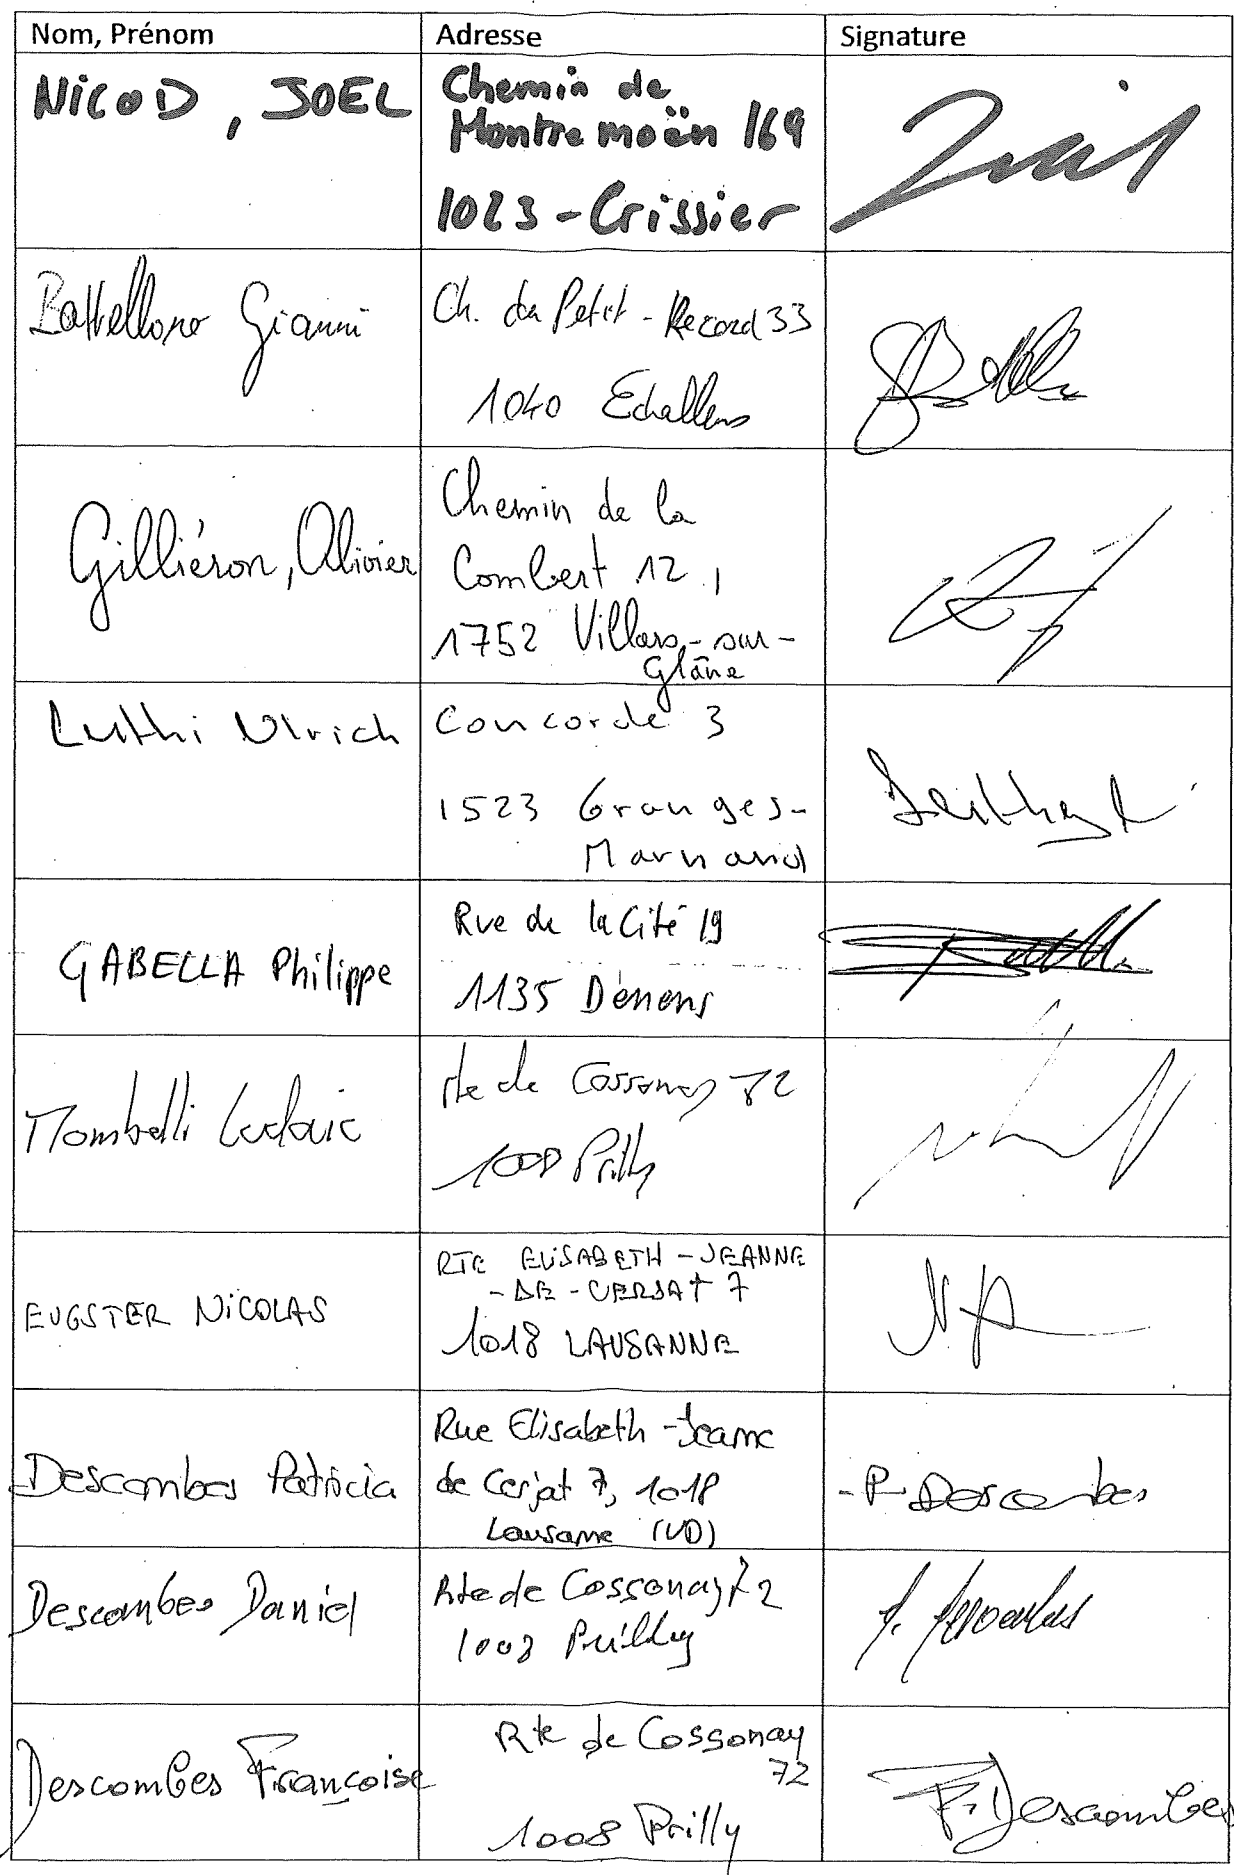 Nom, Prénom
Adresse
Signature
NicoD, JOEL
Chemin de
Montremoën 169
1023 - Crissier
Battellore Gianni
Ch. du Petit - Record 33
1040 Echallens
Gilliéron, Olivier
Chemin de la
Combert 12,
1752 Villars-sur-
Glâne
Luthi Ulrich
Concorde 3
1523 Granges-
Marnand
GABELLA Philippe
Rue de la Cité 19
1135 Denens
Mombelli Ludovic
rte de Cossonay 72
1008 Prilly
EUGSTER NiCOLAS
RTE ELISABETH - JEANNE
- DE - CERJAT 7
1018 LAUSANNE
Descombes Patricia
Rue Elisabeth - Jeanne
de Cerjat 7, 1018
Lausanne (VD)
P. Descombes
Descombes Daniel
Rte de Cossonay 72
1008 Prilly
Descombes Françoise
Rte de Cossonay
72
1008 Prilly
F. Descombes